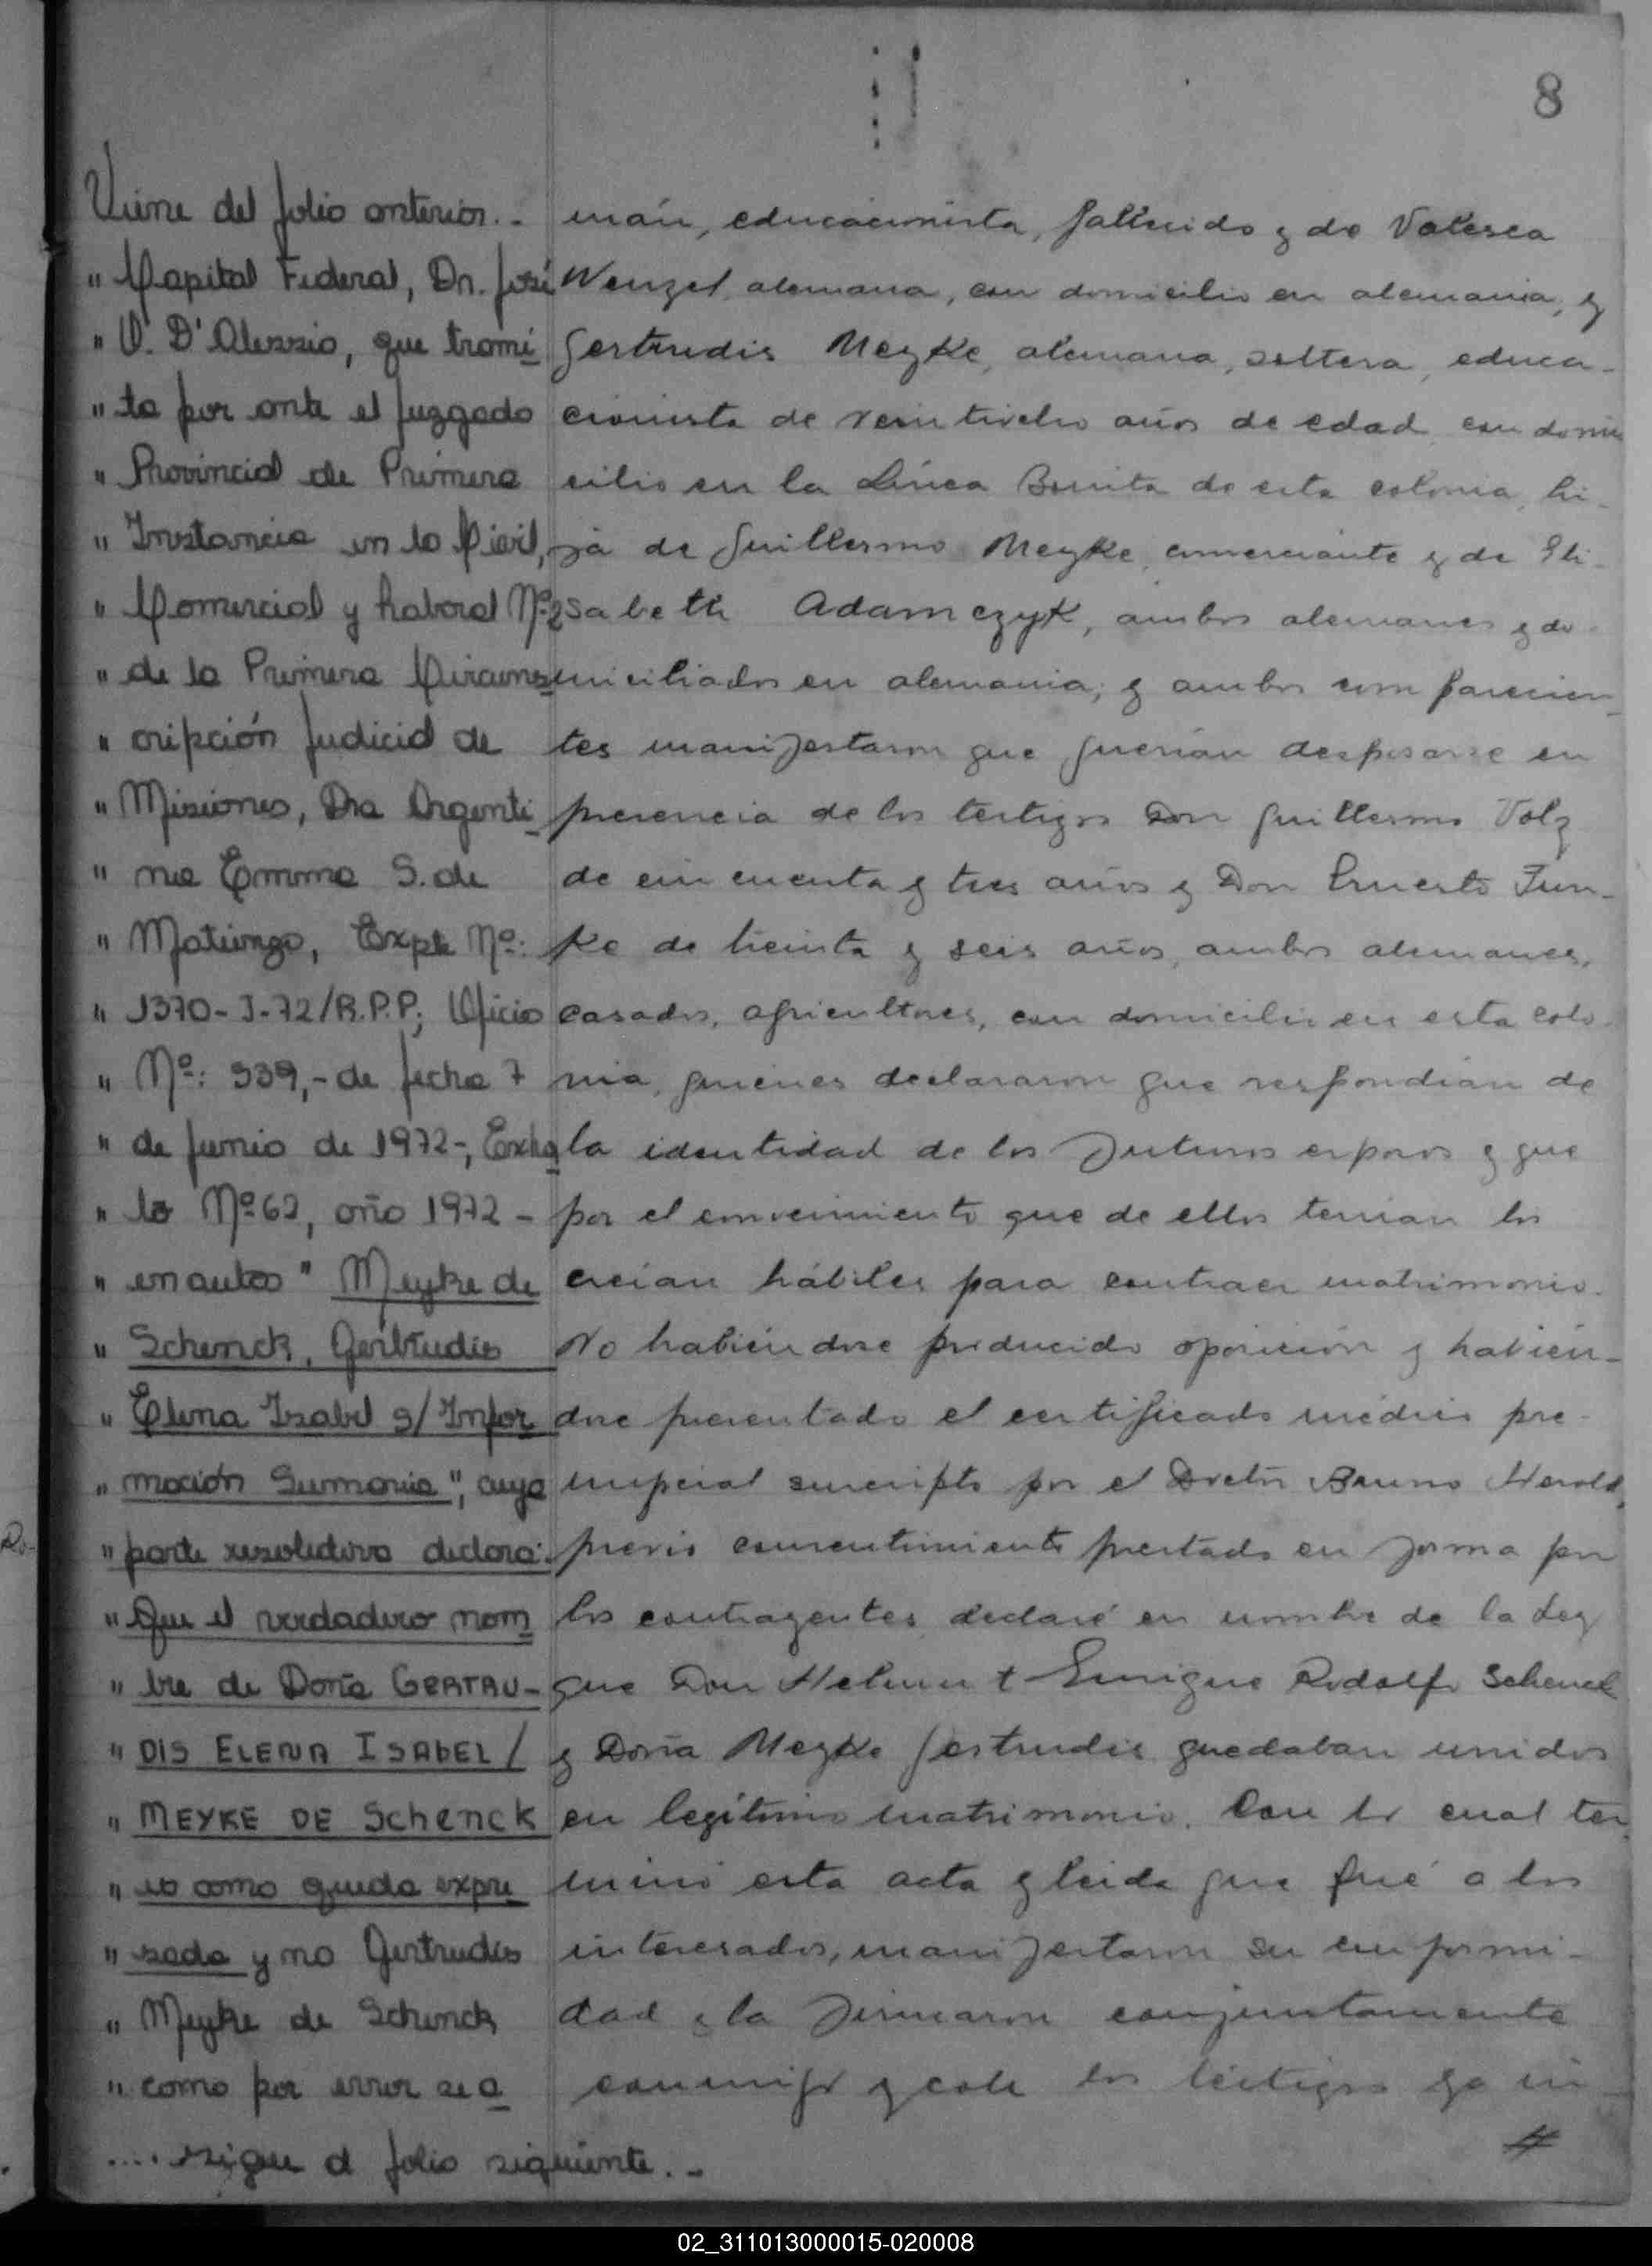 8
Viene del folio anterior.-
" Capital Federal, Dn. José
" V. D'Alessio, que trami
" ta por ante el Juzgado
" Provincial de Primera
" Instancia en lo Civil,
" Comercial y Laboral Nº2
" de la Primera Circuns
" cripción Judicial de
" Misiones, Dra Argenti
" na Emma S. de
" Expte Nº:
" 1370-J-72/R.P.P; Oficio
" Nº: 939,- de fecha 7
" de Junio de 1972-, Exho
" to Nº62, año 1972-
" en autos " Meyke de
" Schenck, Gertrudis
" Elena Isabel s/ Infor
" mación Sumaria", cuya
" parte resolutiva declara:
" Que el verdadero nom
" bre de Doña GERTRU-
" DIS ELENA ISABEL /
" MEYKE DE SchencK
" es como queda expre
" sado y no Gertrudis
" Meyke de Schenck
" como por error se a
.... sigue al folio siguiente.-
mán, educacionista, fallecido y de Valesca
Wenzel, alemana, con domicilio en alemania, y
Gertrudis Meyke, alemana, soltera, educa-
cionista de veintiocho años de edad, con domi
cilio en la Línea Bonita de esta colonia, hi-
ja de Guillermo Meyke, comerciante y de Eli-
sabeth Adamczyk, ambos alemanes y do-
miciliados en alemania; y ambos comparecien
tes manifestaron que querían desposarse en
presencia de los testigos Don Guillermo Volz
de cincuenta y tres años y Don Ernesto Fun-
ke de treinta y seis años, ambos alemanes,
casados, agricultores, con domicilio en esta colo-
nia, quienes declararon que respondían de
la identidad de los futuros esposos y que
por el conocimiento que de ellos tenían los
creían hábiles para contraer matrimonio.
No habiéndose producido oposición y habién-
dose presentado el certificado médico pre-
nupcial suscripto por el Doctor Bruno Herold,
previo consentimiento prestado en forma por
los contrayentes, declaré en nombre de la Ley
que Don Helmut Enrique Rodolfo Schenck
y Doña Meyke Gertrudis quedaban unidos
en legítimo matrimonio. Con lo cual ter
minó esta acta y leída que fué a los
interesados, manifestaron su conformi-
dad y la firmaron conjuntamente
conmigo y con los testigos ya in-
#
02_311013000015-020008